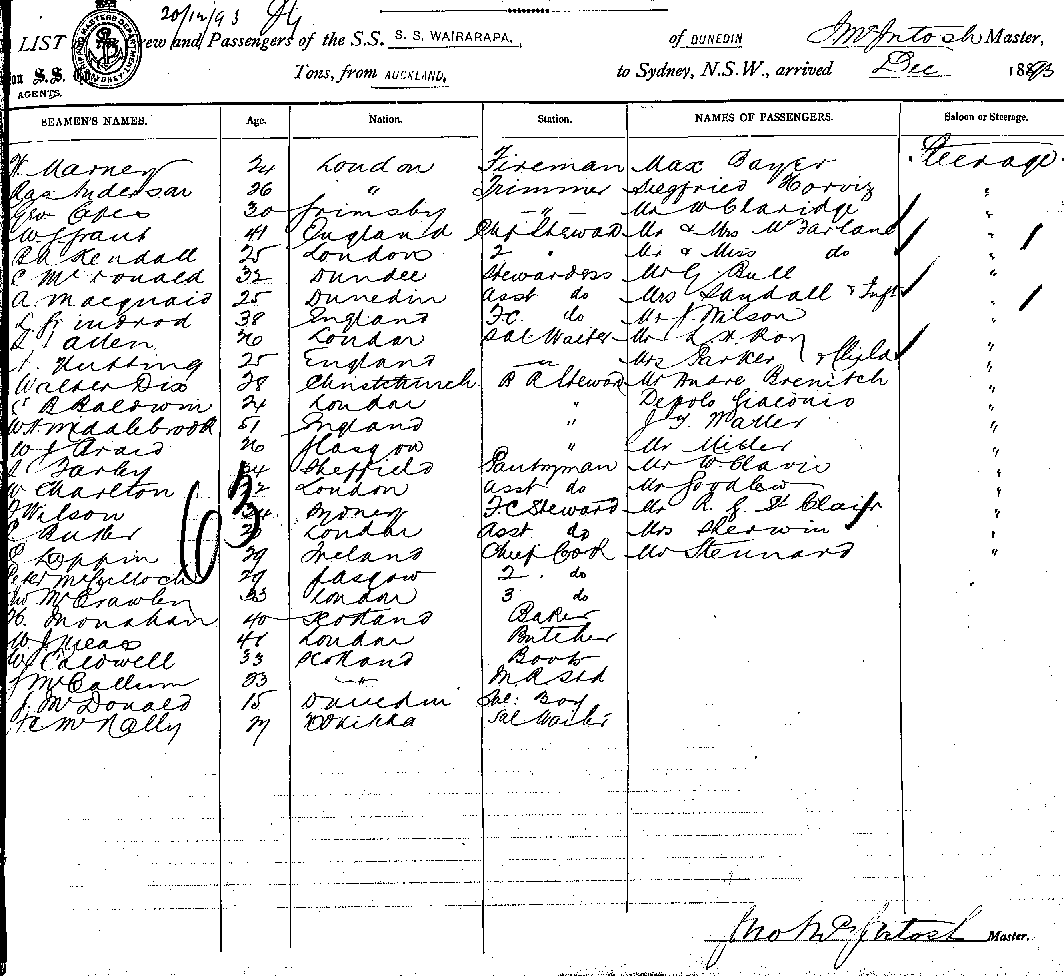 20/12/93
LIST rew and Passengers of the S.S. S. S. WAIRARAPA, of DUNEDIN McIntosh Master,
on S.S. Tons, from AUCKLAND, to Sydney, N.S.W., arrived Dec 1893
AGENTS.
SEAMEN'S NAMES. Age. Nation. Station. NAMES OF PASSENGERS. Saloon or Steerage.
Marney 24 London Fireman Max Bayer Steerage
Anderson 26 " Trimmer Siegfried Horviz "
Geo 30 Grimsby " Mr W Claridge "
W Grant 41 England Chf Steward Mr & Mrs McFarland "
Kendall 25 London 2 " Mr & Miss do "
McDonald 32 Dundee Stewardess Mr G Bull "
A Macquaid 25 Dunedin Asst do Mrs Sandall & Inft "
38 England F.C. do Mr J Wilson "
Allen 26 London Sal Waiter Mr "
Nutting 25 England Mrs Parker & Child "
Walter Dix 28 Christchurch B R Steward Mr Andre Brenitch "
R Baldwin 24 London " Giaconio "
51 England " "
W J 26 Glasgow " Mr Miller "
Farley 34 Sheffield Pantryman Mr "
Charlton London Asst do Mr Goodlew "
Wilson Sydney F C Steward Mr R. G. St Clair "
London Asst do Mrs Sherwin "
29 Ireland Chief Cook Mr Stennard "
Peter McCulloch 29 Glasgow 2 do
McCrawley 33 London 3 do
H. Monahan 40 Scotland Baker
W J Meas 41 London Butcher
W Caldwell 33 Scotland Boots
J McCallum 23 "
J. McDonald 15 Dunedin Sal: Boy
McNally Hokitika Sal Waiter
63
Jno McIntosh Master.